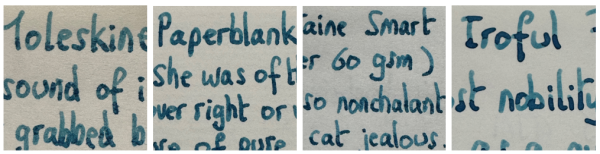 oleskine
sound of i
grabbed b
Paperblank
She was of t
ver right or
re of pure
aine Smart
er 60 gsm )
so nonchalant
cat jealous.
Iroful
st nobility